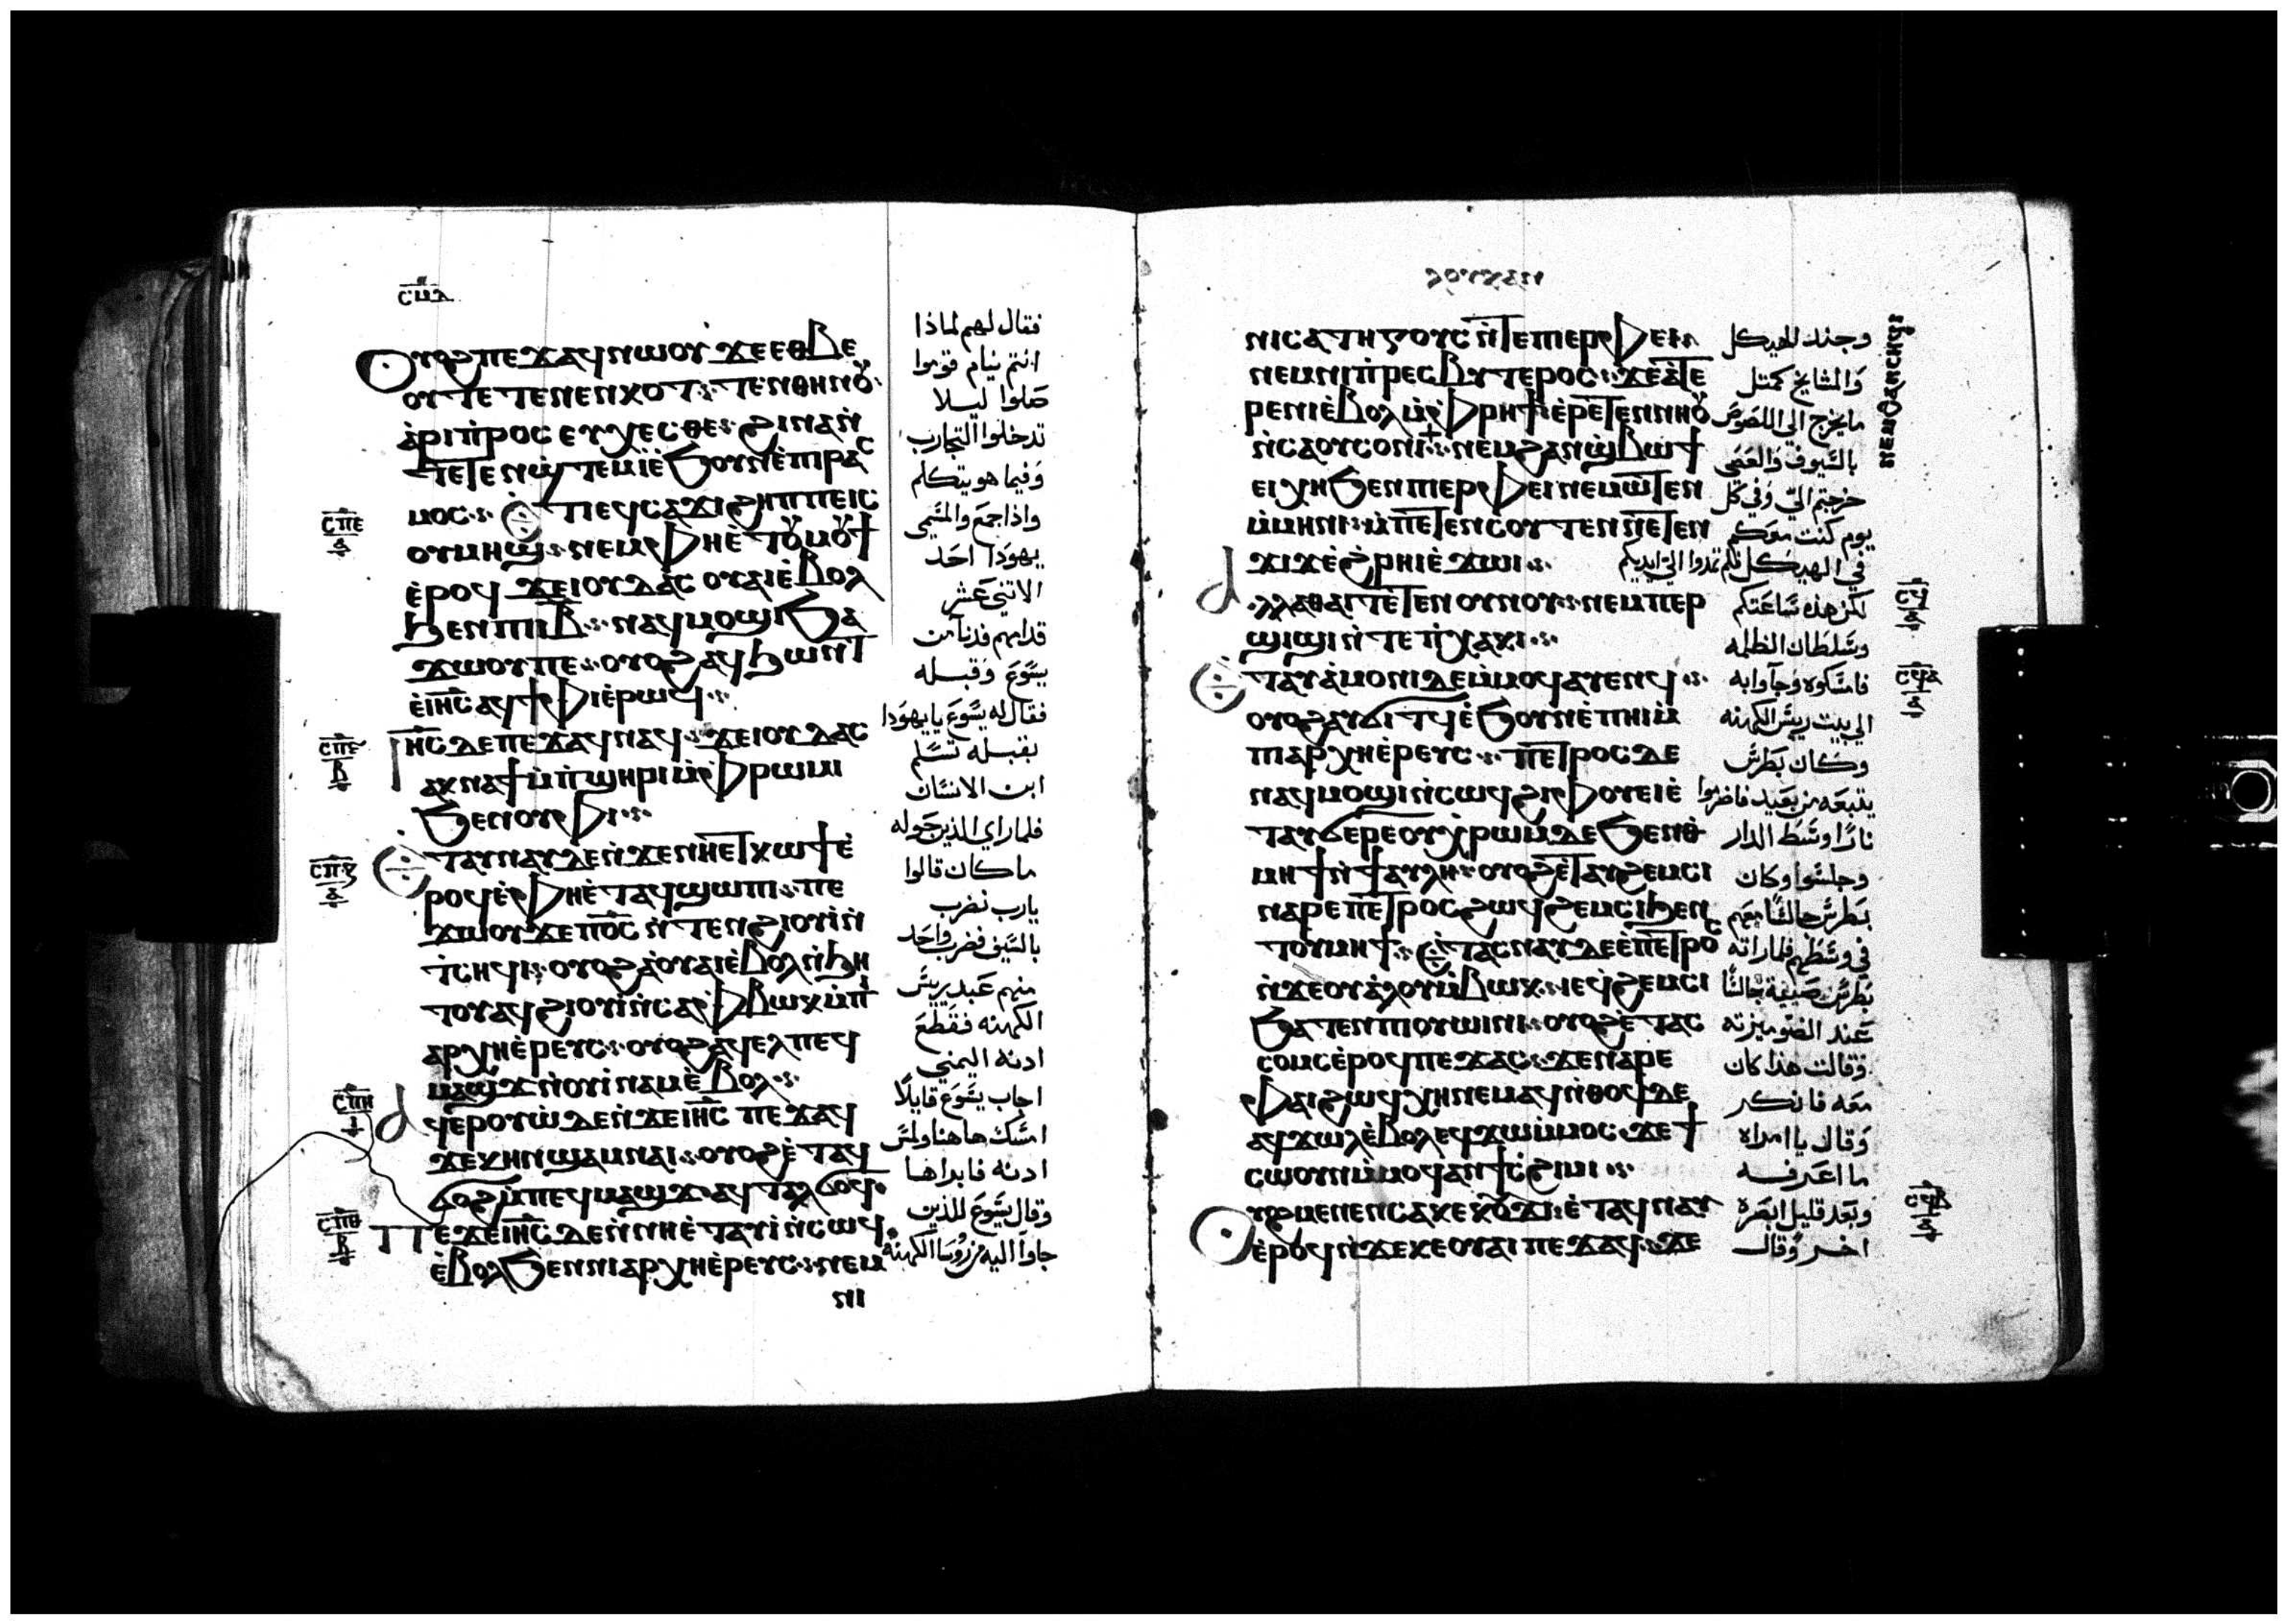 ⲥⲙⲇ
Ⲟⲩⲟϩ ⲡⲉϫⲁϥ ⲛⲱⲟⲩ ϫⲉ ⲉⲑⲃⲉ
ⲟⲩ ⲧⲉⲧⲉⲛⲉⲛⲕⲟⲧ ⲧⲉⲛⲑⲏⲛⲟⲩ
ⲁⲣⲓⲡⲣⲟⲥⲉⲩⲭⲉⲥⲑⲉ ϩⲓⲛⲁ ⲛ̀
ⲧⲉⲧⲉⲛϣⲧⲉⲙⲓ̀ ⲉ̀ϧⲟⲩⲛ ⲉ̀ⲡⲓⲣⲁⲥ
ⲙⲟⲥ Ⲉⲧⲓ ⲉϥⲥⲁϫⲓ ϩⲏⲡⲡⲉ ⲓⲥ
ⲟⲩⲙⲏϣ ⲛⲉⲙ ⲫⲏ ⲉ̀ⲧⲟⲩⲙⲟⲩϯ
ⲉ̀ⲣⲟϥ ϫⲉ ⲓⲟⲩⲇⲁⲥ ⲟⲩⲁⲓ ⲉ̀ⲃⲟⲗ
ϧⲉⲛ ⲡⲓⲓ̅ⲃ̅ ⲛⲁϥⲙⲟϣⲓ ϧⲁ
ϫⲱⲟⲩ ⲡⲉ ⲟⲩⲟϩ ⲁϥϧⲱⲛⲧ
ⲉ̀ⲓⲏ̅ⲥ̅ ⲁϥϯⲫⲓ ⲉ̀ⲣⲱϥ
Ⲓⲏ̅ⲥ̅ ⲇⲉ ⲡⲉϫⲁϥ ⲛⲁϥ ϫⲉ ⲓⲟⲩⲇⲁⲥ
ⲁⲕⲛⲁϯ ⲙ̀ⲡϣⲏⲣⲓ ⲙ̀ⲫⲣⲱⲙⲓ
ϧⲉⲛ ⲟⲩⲫⲓ
Ⲉⲧⲁⲩⲛⲁⲩ ⲇⲉ ⲛ̀ϫⲉ ⲛⲏ ⲉⲧⲕⲱϯ ⲉ̀
ⲣⲟϥ ⲉ̀ⲫⲏ ⲉ̀ⲧⲁϥϣⲱⲡⲓ ⲡⲉ
ϫⲱⲟⲩ ϫⲉ ⲡ̅ⲟ̅ⲥ̅ ⲛ̀ⲧⲉⲛϩⲓⲟⲩⲓ̀ ⲛ̀
ⲧⲥⲏϥⲓ ⲟⲩⲟϩ ⲁ̀ ⲟⲩⲁⲓ ⲉ̀ⲃⲟⲗ ⲛ̀ϧⲏ
ⲧⲟⲩ ⲁϥϩⲓⲟⲩⲓ̀ ⲛ̀ⲥⲁ ⲫⲃⲱⲕ ⲙ̀ⲡⲓ
ⲁⲣⲭⲏⲉ̀ⲣⲉⲩⲥ ⲟⲩⲟϩ ⲁϥⲉⲗ ⲡⲉϥ
ⲙⲁϣϫ ⲛ̀ⲟⲩⲓ̀ⲛⲁⲙ ⲉ̀ⲃⲟⲗ
Ⲁϥⲉⲣⲟⲩⲱ̀ ⲇⲉ ⲛ̀ϫⲉ ⲓⲏ̅ⲥ̅ ⲡⲉϫⲁϥ
ϫⲉ ⲕⲏⲛ ϣⲁ ⲙⲛⲁⲓ ⲟⲩⲟϩ ⲉ̀ⲧⲁϥ
ϭⲟϩ ⲙ̀ⲡⲉϥⲙⲁϣϫ ⲁϥⲧⲁⲗϭⲟϥ
Ⲡⲉϫⲉ ⲓⲏ̅ⲥ̅ ⲇⲉ ⲛ̀ⲛⲏ ⲉ̀ⲧⲁⲩⲓ̀ ⲛ̀ⲥⲱϥ
ⲉ̀ⲃⲟⲗ ϧⲉⲛ ⲛⲓⲁⲣⲭⲏⲉ̀ⲣⲉⲩⲥ ⲛⲉⲙ
ⲛⲓ
ⲥⲡⲉ
ⲥⲡⲋ
ⲃ
ⲥⲡⲍ
ⲥⲡⲏ
ⲥⲡⲑ
ⲃ
فقال لهم لماذا
انتم نيام قوموا
صلوا ليلا
تدخلوا التجارب
وفيما هو يتكلم
واذا جمع والمتسمي
يهودا احد
الاثني عشر
قدامهم فدنا من
يسوع وقبله
فقال له يسوع يا يهودا
بقبله تسلم
ابن الانسان
فلما راي الذين حوله
ما كان قالوا
يارب نضرب
بالسيف فضرب واحد
منهم عبد ريس
الكهنه فقطع
ادنه اليمني
اجاب يسوع قايلا
امسك هاهنا ولمس
ادنه فابراها
وقال يسوع للذين
جاوا اليه من روسا الكهنه
ⲗⲟⲩⲕⲁⲛ
ⲛⲓⲥⲁⲧⲏⲅⲟⲩⲥ ⲛ̀ⲧⲉ ⲡⲓⲉⲣⲫⲉⲓ
ⲛⲉⲙ ⲛⲓⲡⲣⲉⲥⲃⲩⲧⲉⲣⲟⲥ ϫⲉ ⲁ̀ⲧⲉ
ⲣⲉⲛⲓ̀ ⲉ̀ⲃⲟⲗ ⲙ̀ⲫⲣⲏϯ ⲉ̀ⲣⲉⲧⲉⲛⲛⲏⲟⲩ
ⲛ̀ⲥⲁ ⲟⲩⲥⲟⲛⲓ ⲛⲉⲙ ϩⲁⲛϣ̀ⲃⲱϯ
ⲉⲓⲭⲏ ϧⲉⲛ ⲡⲓⲉⲣⲫⲉⲓ ⲛⲉⲙⲱⲧⲉⲛ
ⲙ̀ⲙⲏⲛⲓ ⲙ̀ⲡⲉⲧⲉⲛⲥⲟⲩⲧⲉⲛ ⲛⲉⲧⲉⲛ
ϫⲓϫ ⲉ̀ϩ̀ⲣⲏⲓ ⲉ̀ϫⲱⲓ
Ⲁⲗⲗⲁ ⲑⲁⲓ ⲧⲉ ⲧⲉⲧⲉⲛⲟⲩⲛⲟⲩ ⲛⲉⲙ ⲡⲉⲣ
ϣⲓϣⲓ ⲛ̀ⲧⲉ ⲡⲭⲁⲕⲓ
Ⲉⲧⲁⲩⲁ̀ⲙⲟⲛⲓ ⲇⲉ ⲙ̀ⲙⲟϥ ⲁⲩⲉⲛϥ
ⲟⲩⲟϩ ⲁⲩϭⲓⲧϥ ⲉ̀ϧⲟⲩⲛ ⲉ̀ⲡⲏⲓ ⲙ̀
ⲡⲓⲁⲣⲭⲏⲉ̀ⲣⲉⲩⲥ ⲡⲉⲧⲣⲟⲥ ⲇⲉ
ⲛⲁϥⲙⲟϣⲓ ⲛ̀ⲥⲱϥ ϩⲓ ⲫⲟⲩⲉⲓ ⲉ̀
ⲧⲁⲩϭⲉⲣⲉ ⲟⲩⲭ̀ⲣⲱⲙ ⲇⲉ ϧⲉⲛ ⲑ
ⲙⲏϯ ⲛ̀ϯⲁⲩⲗⲏ ⲟⲩⲟϩ ⲉ̀ⲧⲁⲩϩⲉⲙⲥⲓ
ⲛⲁⲣⲉ ⲡⲉⲧⲣⲟⲥ ϩⲱϥ ϩⲉⲙⲥⲓ ϧⲉⲛ
ⲧⲟⲩⲙⲏϯ Ⲉⲧⲁⲥⲛⲁⲩ ⲇⲉ ⲉ̀ⲡⲉⲧⲣⲟⲥ
ⲛ̀ϫⲉ ⲟⲩⲁ̀ⲗⲟⲩ ⲙ̀ⲃⲱⲕ ⲛⲉϥϩⲉⲙⲥⲓ
ϧⲁⲧⲉⲛ ⲡⲓⲟⲩⲱⲓⲛⲓ ⲟⲩⲟϩ ⲉ̀ⲧⲁⲥ
ⲥⲟⲙⲥ ⲉ̀ⲣⲟϥ ⲡⲉϫⲁⲥ ϫⲉ ⲛⲁⲣⲉ
ⲫⲁⲓ ϩⲱϥ ⲭⲏ ⲛⲉⲙⲁϥ ⲛ̀ⲑⲟϥ ⲇⲉ
ⲁϥϫⲱⲗ ⲉ̀ⲃⲟⲗ ⲉϥϫⲱ ⲙ̀ⲙⲟⲥ ϫⲉ ϯ
ⲥⲱⲟⲩⲛ ⲙ̀ⲙⲟϥ ⲁⲛ ϯⲥ̀ϩⲓⲙⲓ
Ⲟⲩⲟϩ ⲙⲉⲛⲉⲛⲥⲁ ⲕⲉⲕⲟⲩϫⲓ ⲉ̀ⲧⲁϥⲛⲁⲩ
ⲉ̀ⲣⲟϥ ⲛ̀ϫⲉ ⲕⲉⲟⲩⲁⲓ ⲡⲉϫⲁϥ ϫⲉ
وجند الهيكل
والمشايخ كمثل
ما يخرج الي اللصوص
بالسيوف والعصي
خرجتم الي وفي كل
يوم كنت معكم
في الهيكل فلم تمدوا الي ايديكم
لكن هذه ساعتكم
وسلطان الظلمه
فامسكوه وجاوا به
الي بيت ريس الكهنه
وكان بطرس
يتبعه من بعيد فاضرموا
نارا وسط الدار
وجلسوا وكان
بطرس جالسا معهم
في وسطهم فلما راته
بطرس صبية جالسا
عند الضو ميزته
وقالت هذا كان
معه فانكر
وقال يا امراه
ما اعرفه
وبعد قليل ابصره
اخر وقال
ⲥϥ
ⲥϥⲁ
ⲥϥⲃ